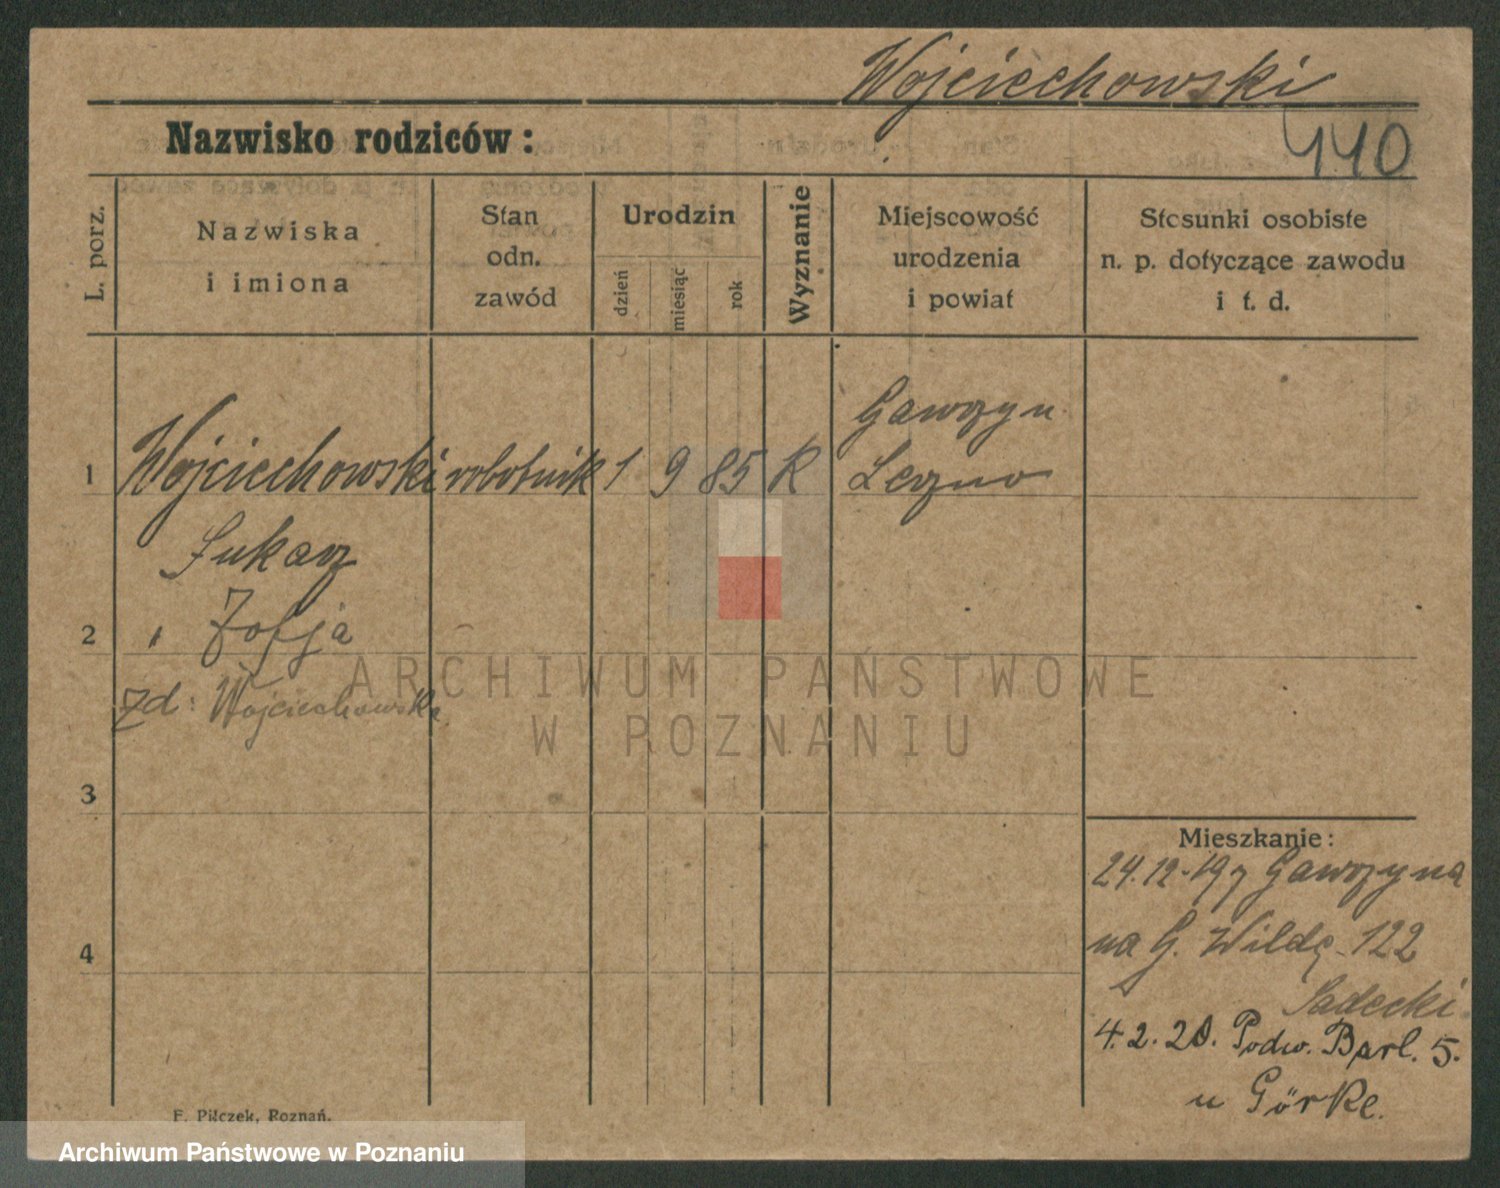 Wojciechowski
Nazwisko rodziców:
440
L. porz.
Nazwiska
i imiona
Stan
odn.
zawód
Urodzin
dzień
miesiąc
rok
Wyznanie
Miejscowość
urodzenia
i powiat
Stosunki osobiste
n. p. dotyczące zawodu
i t. d.
Gawrzyn
1 Wojciechowski robotnik 1 9 85 K Leszno
Łukasz
2 " Zofja
zd: Wojciechowska
3
4
Mieszkanie:
24.12.19 z Gawrzyna
na G. Wildę 122
Sadecki
4.2.20. Podw. Barl. 5.
u Görke.
F. Pilczek, Poznań.
ARCHIWUM PAŃSTWOWE
W POZNANIU
Archiwum Państwowe w Poznaniu